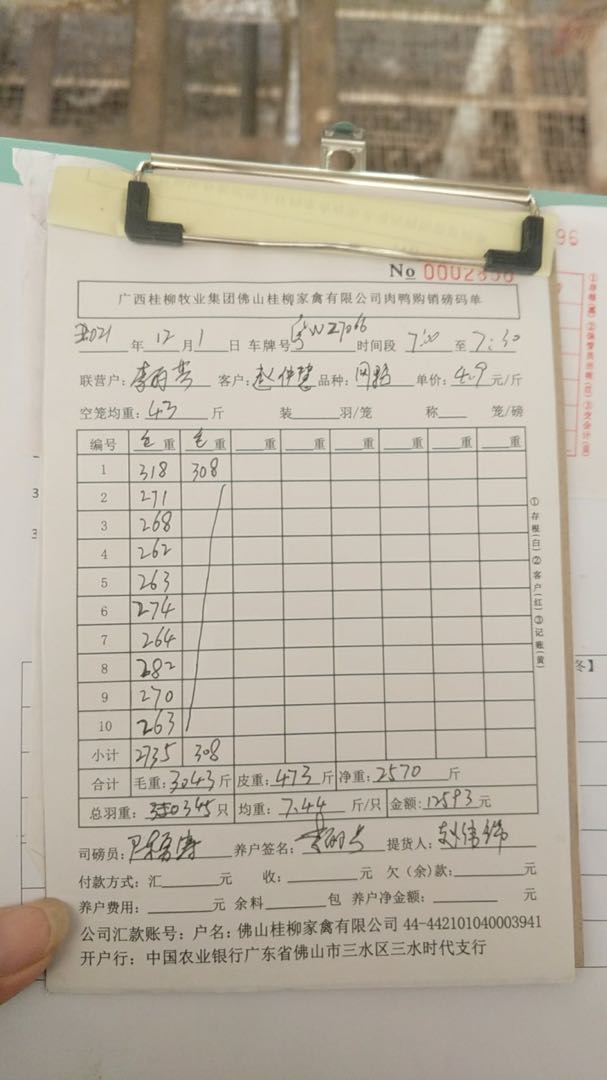 96
No 0002896
广西桂柳牧业集团佛山桂柳家禽有限公司肉鸭购销磅码单
2021年12月1日 车牌号 WZ7066 时间段 7:00 至 7:30
联营户: 客户: 品种: 单价: 4.9 元/斤
空笼均重: 43 斤 装 羽/笼 称 笼/磅
编号 毛重 毛重 重 重 重 重 重 重
1 318 308
2 271
3 268
4 262
5 263
6 274
7 264
8 282
9 270
10 263
小计 2735 308
合计 毛重: 3043 斤 皮重: 473 斤 净重: 2570 斤
总羽重: 345 只 均重: 7.44 斤/只 金额: 12593 元
司磅员: 养户签名: 提货人:
付款方式: 汇 元 收: 元 欠(余)款: 元
养户费用: 元 余料 包 养户净金额: 元
公司汇款账号: 户名: 佛山桂柳家禽有限公司 44-442101040003941
开户行: 中国农业银行广东省佛山市三水区三水时代支行
①存根(白)②客户(红)③记账(黄)